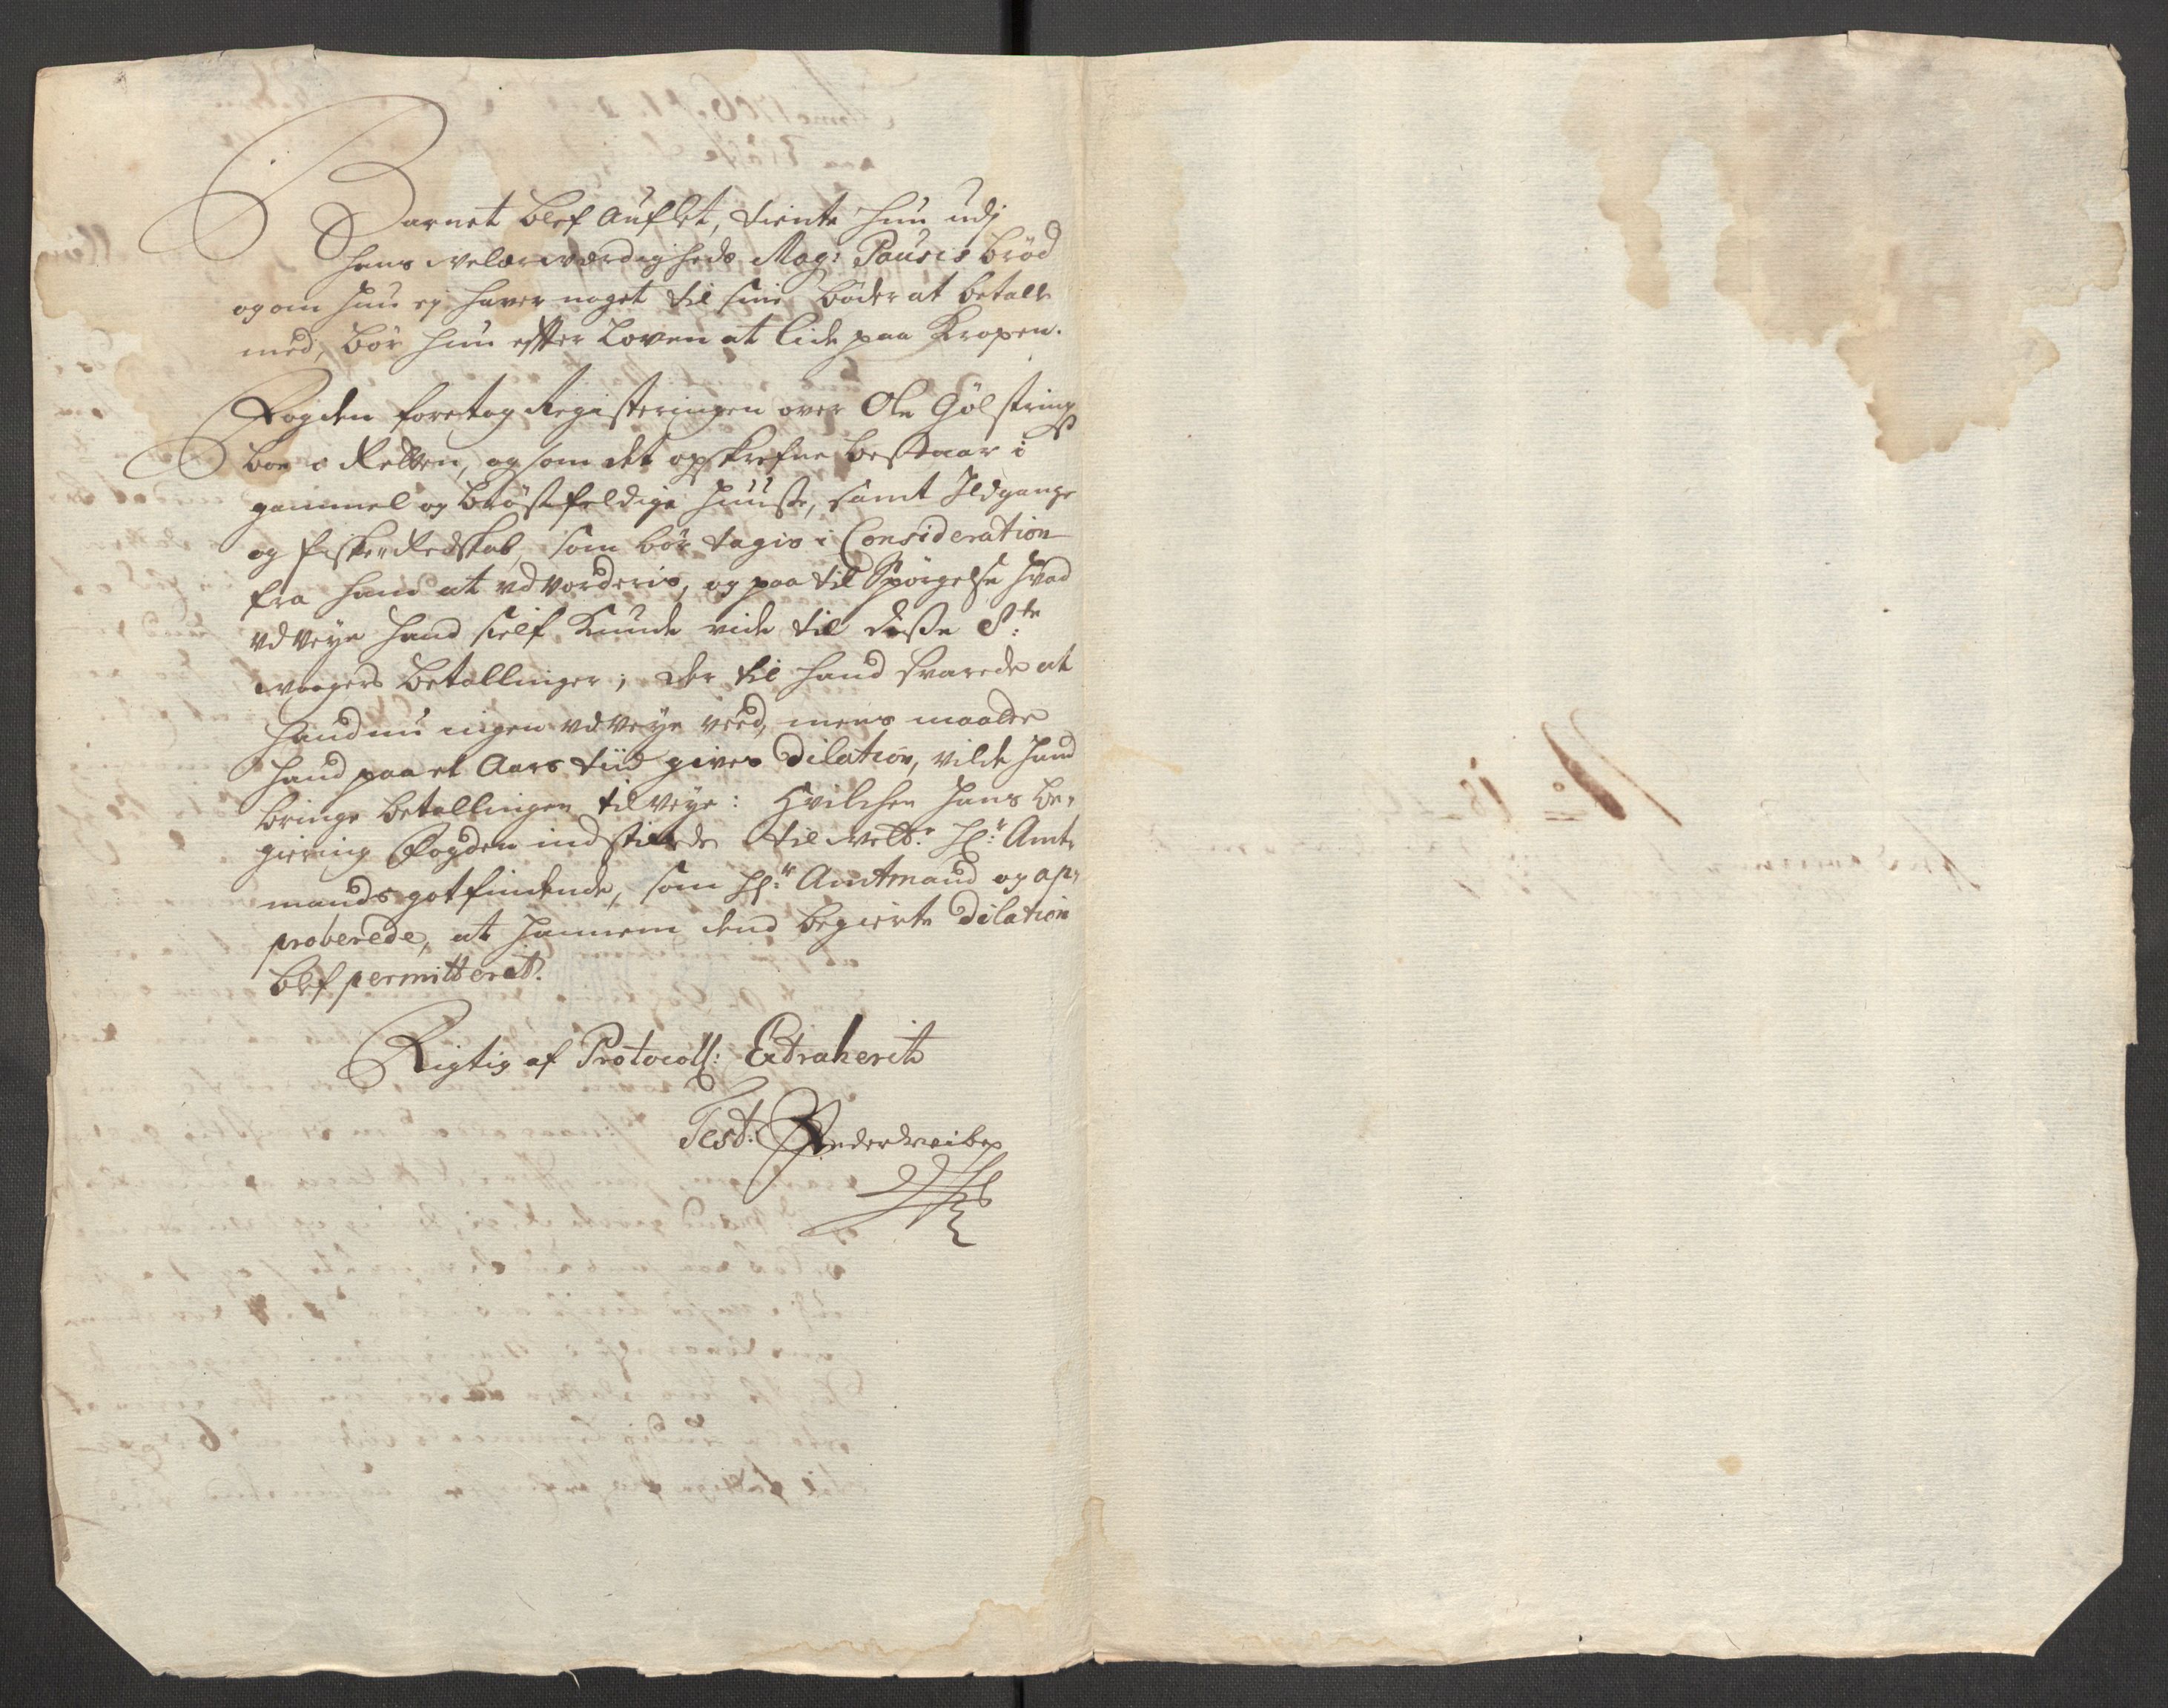 Barnet blef auflet, tiente hun udj
hans velærværdigheds Mag: Pauscis brød
og om hun ej haver noget til sine bøder at betale
med, bør hun effter Loven at lide paa Kropen.
Fogden foretog Registeringen over Ole Gølstrings
boe i Retten, og som det opskrefne bestaar i
gammel og brøstfeldige huuse, samt Ildgange
og fiske Redskab, som bør tagis i Consideration
fra hand at vdvorderis, og paa til Spørgelse hvad
vdveye hand self kunde vide til disse S:te
waagers betallinger; der til hand svarede at
hand nu ingen vdveye veed, mens maatte
hand paa et Aars tiid gives Dilation, vilde hand
bringe betallingen tilveye: Hvilchen hans be,
giering Fogden indstillede til velb: Hr: Amt,
mands gotfindende, som Hr: Amtmand og ap,
proberede, at hannem dend begierte Dilation
blef permitteret.
Rigtig af Protocoll: Extraherit
Test:
No 18